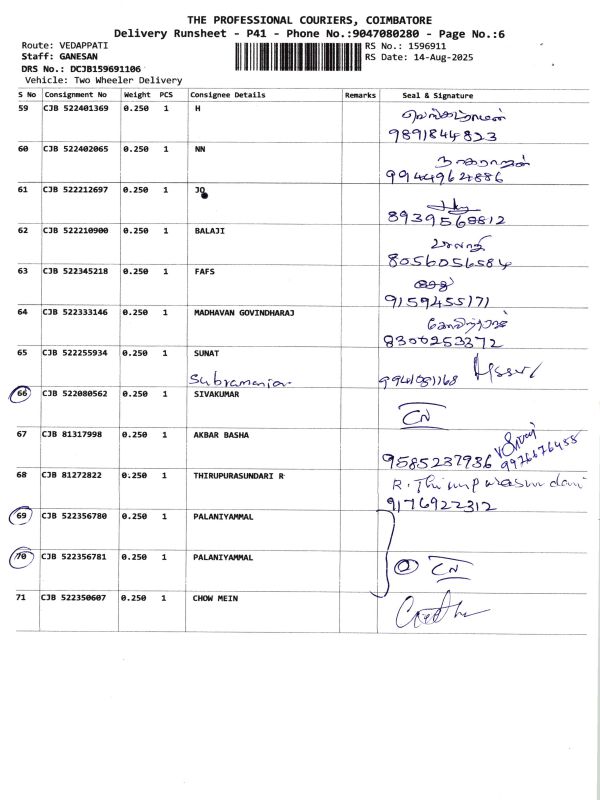 THE PROFESSIONAL COURIERS, COIMBATORE
Delivery Runsheet - P41 - Phone No.:9047080280 - Page No.:6
Route: VEDAPPATI
RS No.: 1596911
Staff: GANESAN
RS Date: 14-Aug-2025
DRS No.: DCJB159691106
Vehicle: Two Wheeler Delivery
S No Consignment No Weight PCS Consignee Details Remarks Seal & Signature
59 CJB 522401369 0.250 1 H
9891844823
60 CJB 522402065 0.250 1 NN நாகராஜன்
9944962886
61 CJB 522212697 0.250 1 JO
8939568812
62 CJB 522210900 0.250 1 BALAJI பாலாஜி
8056056584
63 CJB 522345218 0.250 1 FAFS
9159455171
64 CJB 522333146 0.250 1 MADHAVAN GOVINDHARAJ கோவிந்தராஜ்
8300253372
65 CJB 522255934 0.250 1 SUNAT
Subramanian 9941081168
66 CJB 522080562 0.250 1 SIVAKUMAR
CN
67 CJB 81317998 0.250 1 AKBAR BASHA
9585237936 9976676455
68 CJB 81272822 0.250 1 THIRUPURASUNDARI R R. Thirupurasundari
9176922312
69 CJB 522356780 0.250 1 PALANIYAMMAL
70 CJB 522356781 0.250 1 PALANIYAMMAL CN
71 CJB 522350607 0.250 1 CHOW MEIN Geetha